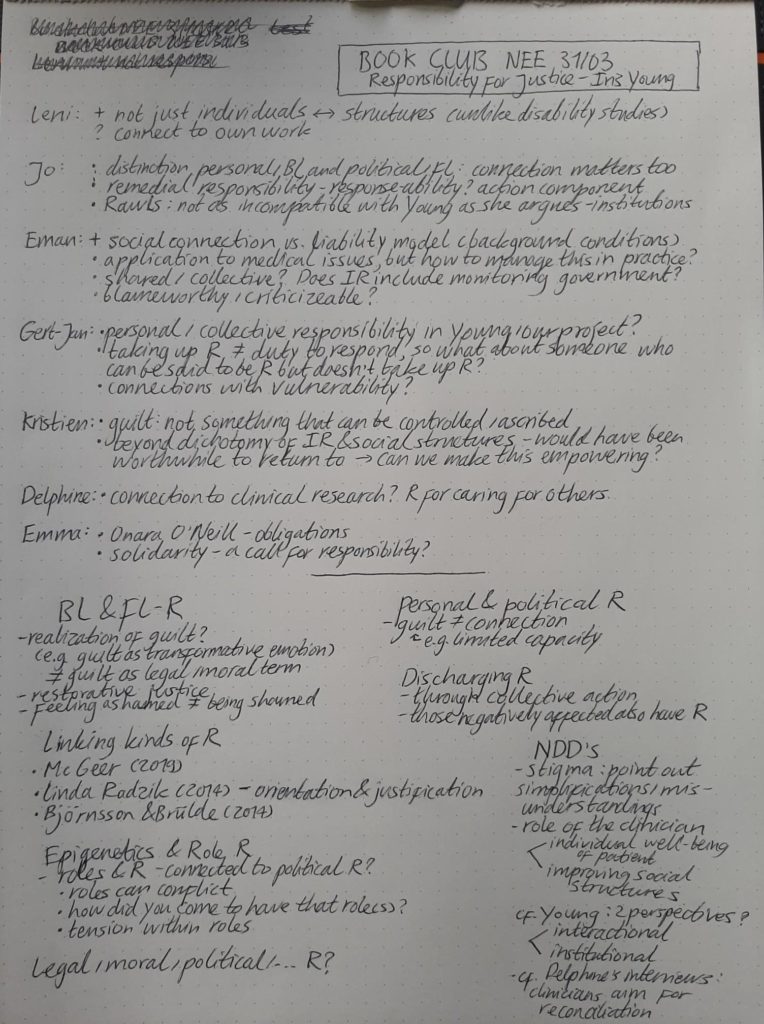 test
BOOK CLUB NEE 31/03
Responsibility for Justice - Iris Young
Leni: + not just individuals ↔ structures (unlike disability studies)
? connect to own work
Jo: • distinction personal/BL and political/FL: connection matters too
• remedial responsibility - response-ability? action component
• Rawls: not as incompatible with Young as she argues - institutions
Eman: + social connection vs. liability model (background conditions)
• application to medical issues, but how to manage this in practice?
• shared/collective? Does IR include monitoring government?
• blameworthy/criticizeable?
Gert-Jan: • personal/collective responsibility in Young/our project?
• taking up R ≠ duty to respond, so what about someone who
can be said to be R but doesn't take up R?
• connections with vulnerability?
Kristien: • guilt: not something that can be controlled/ascribed
• beyond dichotomy of IR & social structures - would have been
worthwhile to return to → can we make this empowering?
Delphine: • connection to clinical research? R for caring for others
Emma: • Onara O'Neill - obligations
• solidarity - a call for responsibility?
BL & FL-R
- realization of guilt?
(e.g. guilt as transformative emotion)
≠ guilt as legal/moral term
- restorative justice
- feeling ashamed ≠ being shamed
Personal & political R
- guilt ≠ connection
e.g. limited capacity
Discharging R
- through collective action
- those negatively affected also have R
Linking kinds of R
• McGeer (2019)
• Linda Radzik (2014) - orientation & justification
• Björnsson & Brülde (2017)
Epigenetics & Role R
- roles & R - connected to political R?
• roles can conflict
• how did you come to have that role(s)?
• tension within roles
Legal/moral/political/... R?
NDD's
- stigma: point out
simplifications/mis-
understandings
- role of the clinician
< individual well-being
of patient
improving social
structures
cf. Young: 2 perspectives?
< interactional
institutional
- cf. Delphine's interviews:
clinicians aim for
reconciliation